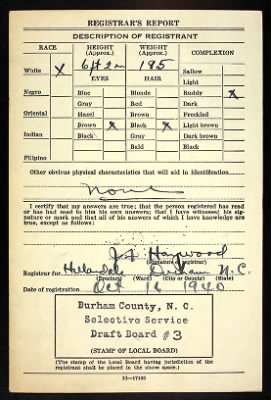 REGISTRAR'S REPORT
DESCRIPTION OF REGISTRANT
RACE HEIGHT (Approx.) WEIGHT (Approx.) COMPLEXION
White X 6 ft 2 in 195 Sallow
EYES HAIR Light
Negro Blue Blonde Ruddy X
Gray Red Dark
Oriental Hazel Brown Freckled
Brown X Black X Light brown
Indian Black Gray Dark brown
Bald Black
Filipino
Other obvious physical characteristics that will aid in identification
None
I certify that my answers are true; that the person registered has read
or has had read to him his own answers; that I have witnessed his sig-
nature or mark and that all of his answers of which I have knowledge
are true, except as follows:
Haywood
(Signature of registrar)
Registrar for Hillandale Durham N.C.
(Precinct) (Ward) (City or County) (State)
Date of registration Oct 16 1940
Durham County, N. C.
Selective Service
Draft Board #3
(STAMP OF LOCAL BOARD)
(The stamp of the Local Board having jurisdiction of the
registrant shall be placed in the above space.)